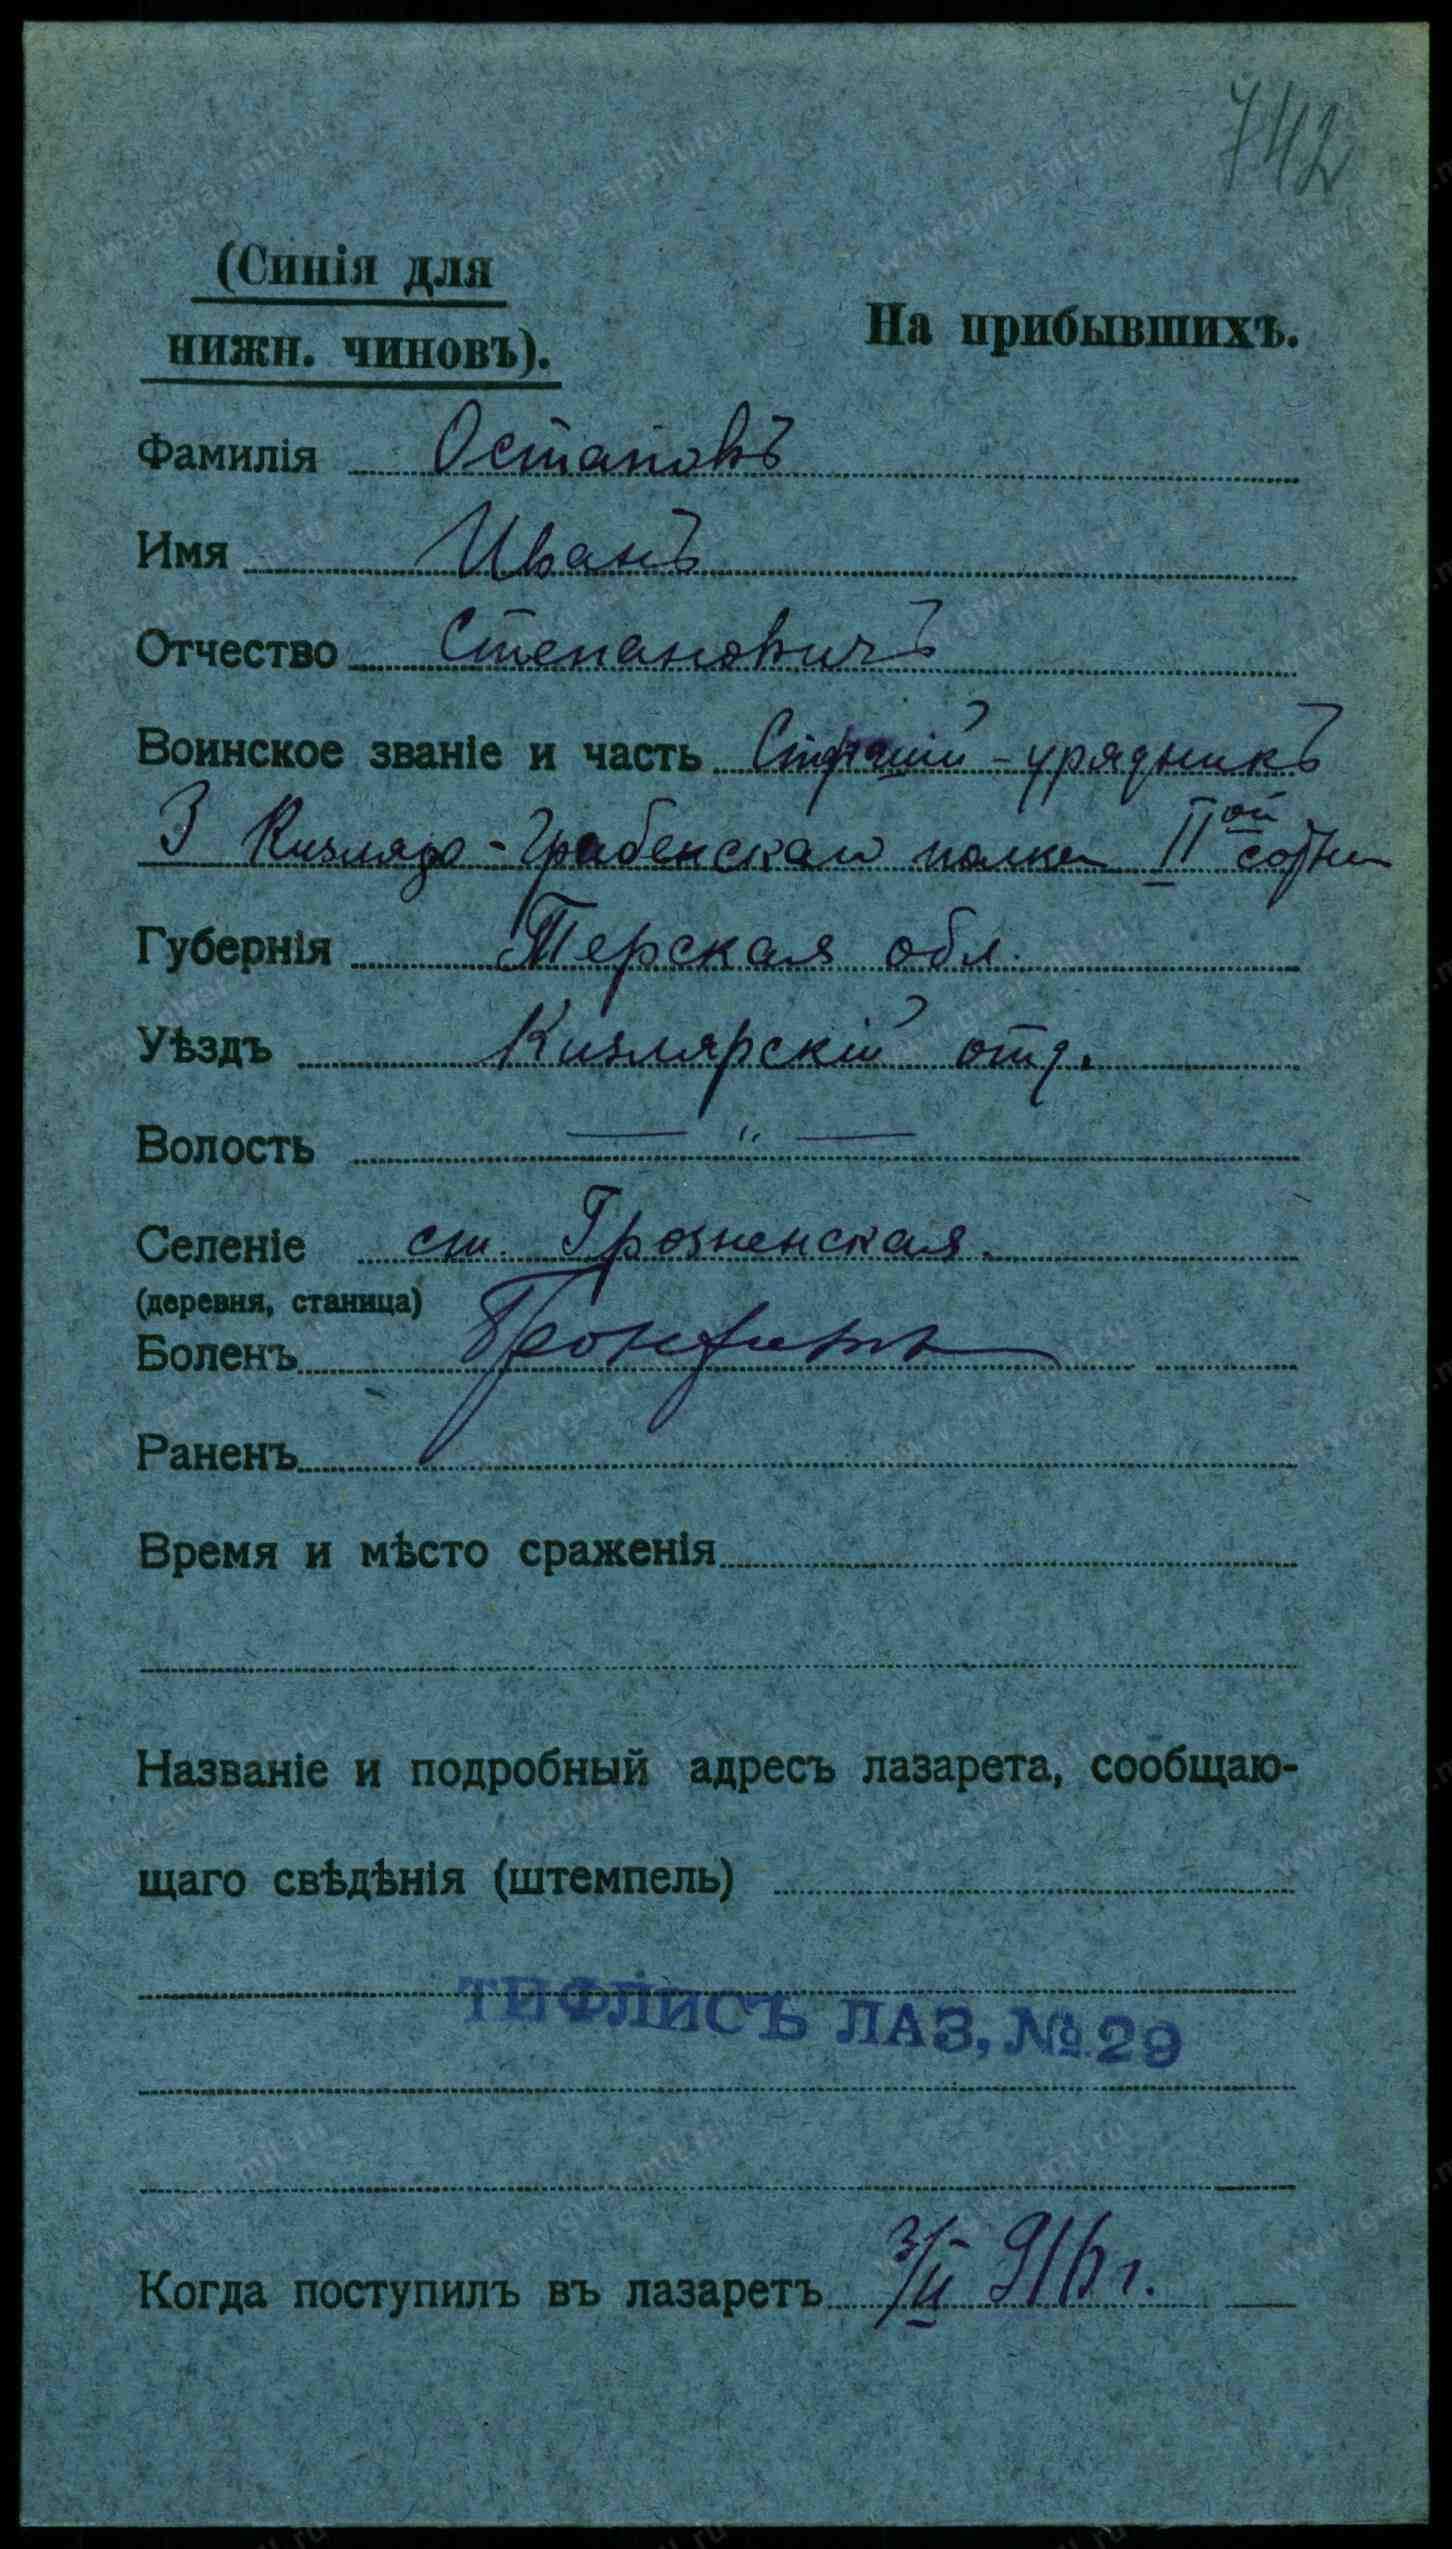 742
(Синія для
нижн. чиновъ).
На прибывшихъ.
Фамилія Остаповъ
Имя Иванъ
Отчество Степановичъ
Воинское званіе и часть Старшій-урядникъ
3 Кизляро-Гребенскаго полка II ой сотни
Губернія Терская обл.
Уѣздъ Кизлярскій отд.
Волость — " —
Селеніе ст. Грозненская.
(деревня, станица)
Боленъ Бронхитъ
Раненъ
Время и мѣсто сраженія
Названіе и подробный адресъ лазарета, сообщаю-
щаго свѣдѣнія (штемпель)
ТИФЛИСЪ ЛАЗ, №29
Когда поступилъ въ лазаретъ 3/II 916 г.